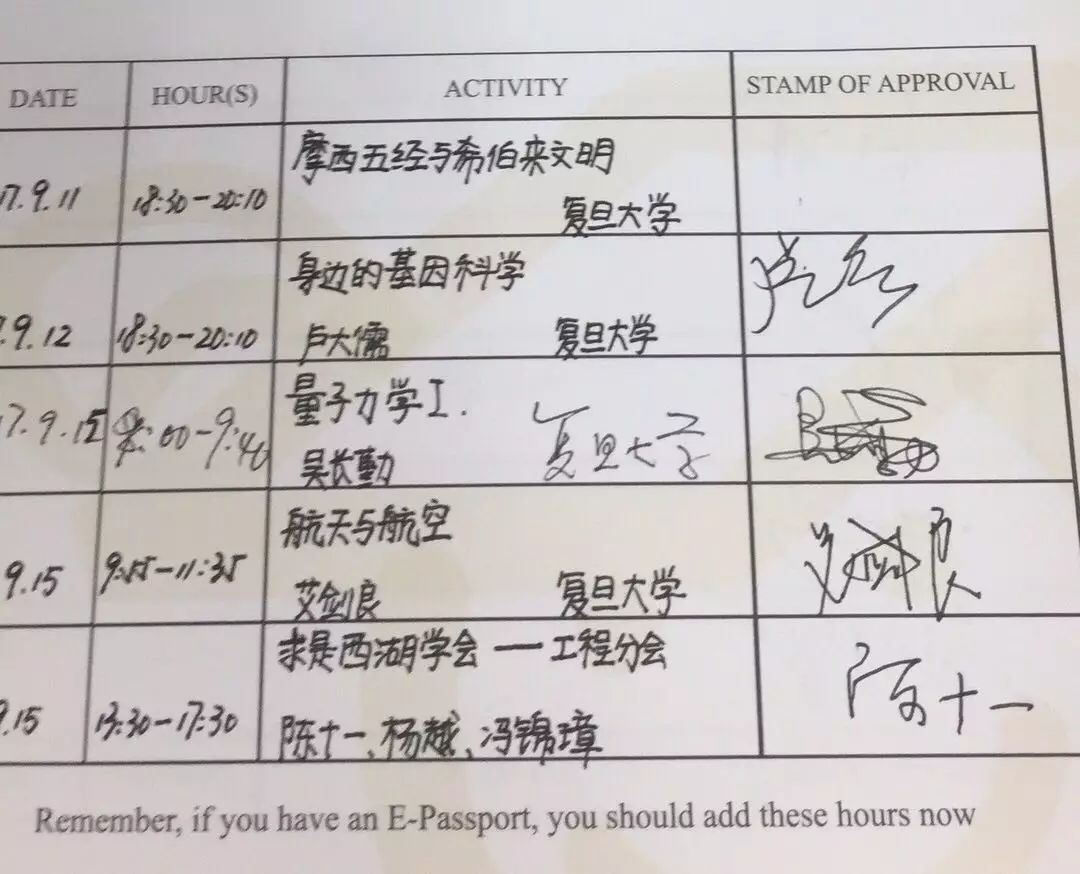 DATE HOUR(S) ACTIVITY STAMP OF APPROVAL
摩西五经与希伯来文明
17.9.11 18:30-20:10 复旦大学
身边的基因科学
.9.12 18:30-20:10 卢大儒 复旦大学
量子力学I.
7.9.15 8:00-9:40 吴长勤 复旦大学
航天与航空
9.15 9:55-11:35 艾剑良 复旦大学
求是西湖学会 — 工程分会
9.15 13:30-17:30 陈十一、杨越、冯锦璋 陈十一
Remember, if you have an E-Passport, you should add these hours now